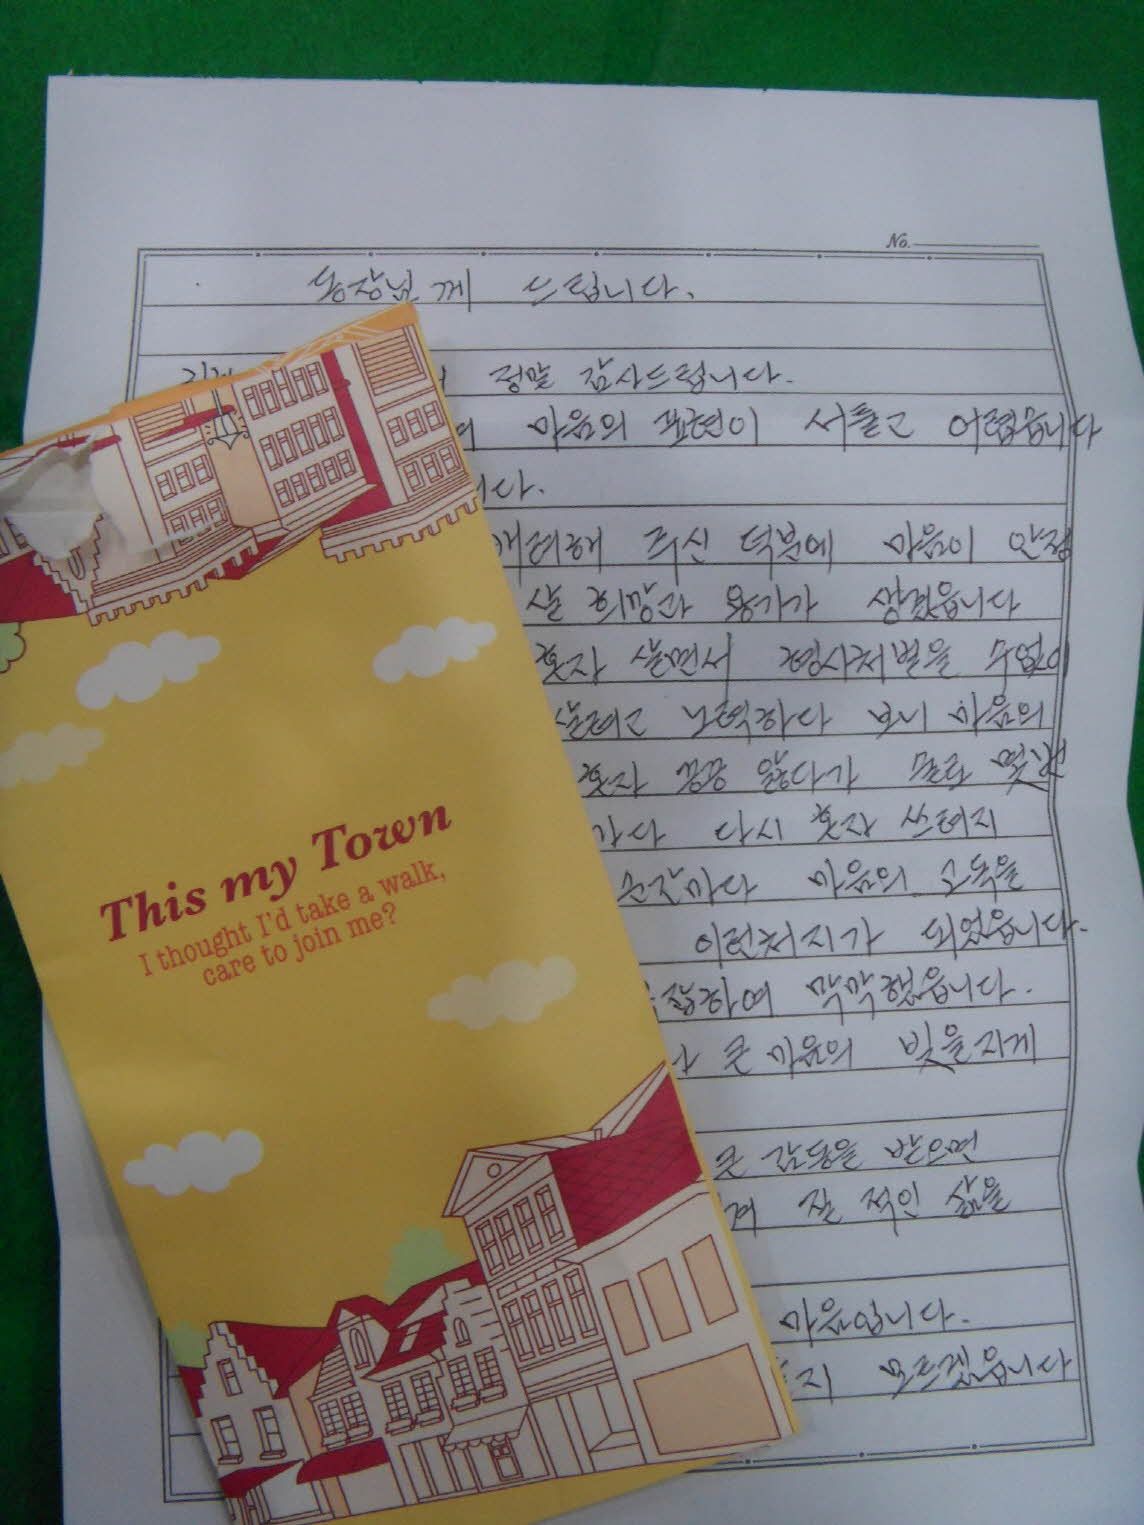 No.
동장님께 드립니다.
정말 감사드립니다.
마음의 표현이 서툴고 어렵습니다
니다.
배려해 주신 덕분에 마음이 안정
살 희망과 용기가 생겼읍니다
혼자 살면서 형사처벌을 수없이
살려고 노력하다 보니 마음의
혼자 끙끙 앓다가
다시 혼자 쓰러지
순간마다 마음의 고독을
이런처지가 되었읍니다.
막막했읍니다.
큰 마음의 빚을지게
큰 감동을 받으면
질 적인 삶을
마음입니다.
지 모르겠읍니다
This my Town
I thought I'd take a walk,
care to join me?